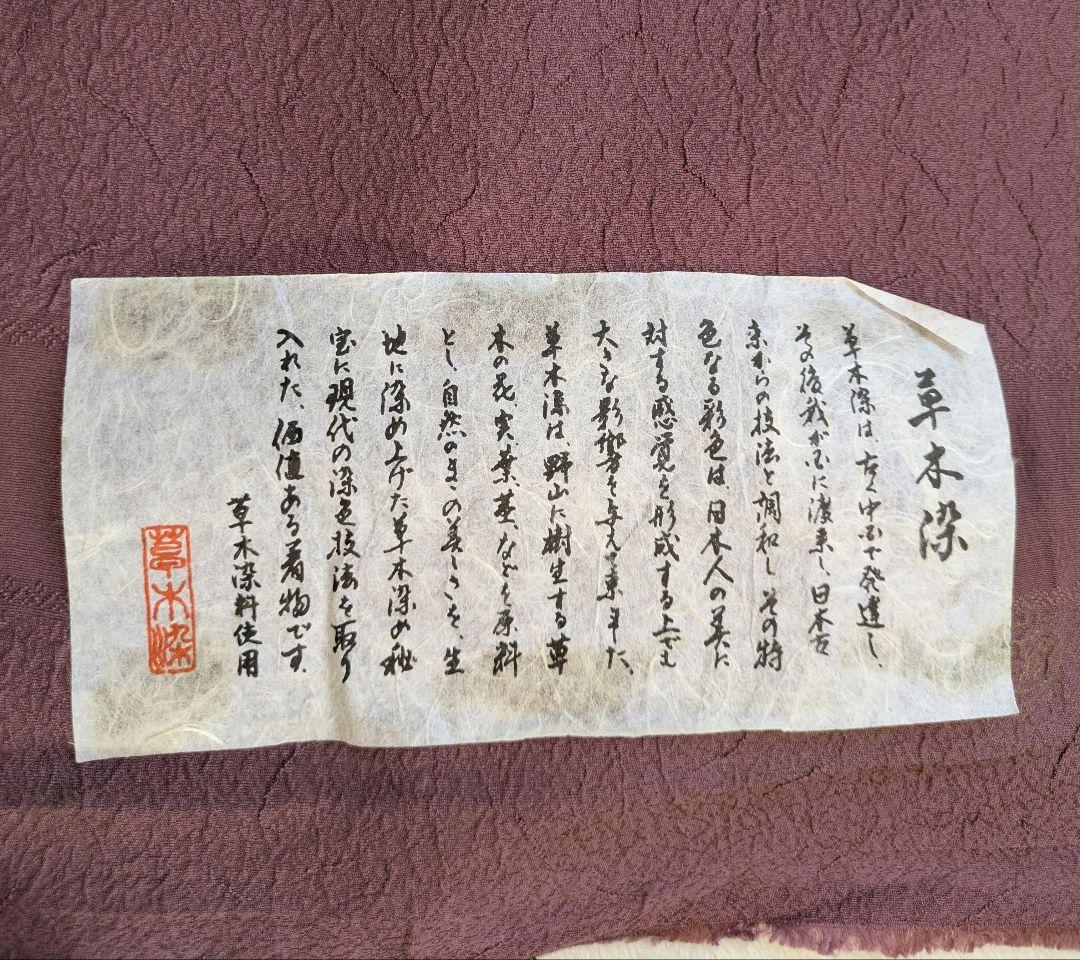 草木染
草木染は、古く中国で発達し、
その後我が国に渡来し、日本古
来からの技法と調和し、その特
色なる彩色は、日本人の美に
対する感覚を形成する上でも
大きな影響を与えて来ました。
草木染は、野山に樹生する草
木の花、実、葉、茎、などを原料
とし、自然のままの美しさを、生
地に染め上げた草木染の秘
宝に現代の染色技法を取り
入れた、価値ある着物です。
草木染料使用
草木染